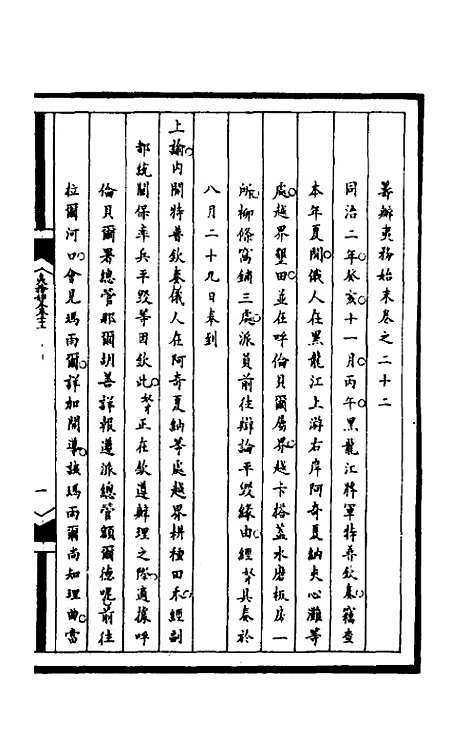 籌辦夷務始末卷之二十二
同治二年癸亥十一月丙午黑龍江將軍特普欽奏竊查
本年夏間俄人在黑龍江上游右岸阿奇夏納貞心灘等
處越界墾田並在呼倫貝爾屬界越卡搭蓋水磨板房一
所柳條窩鋪三處派員前往辯論平毀緣由經奴才具奏於
八月二十九日奉到
上諭內閣特普欽奏俄人在阿奇夏納等處越界耕種田禾經副
都統關保率兵平毀等因欽此奴才正在欽遵辦理之際適據呼
倫貝爾署總管那爾胡善詳報遵派總管額爾德呢前往
拉爾河口會見瑪雨爾詳加開導該瑪雨爾尚知理曲當
一